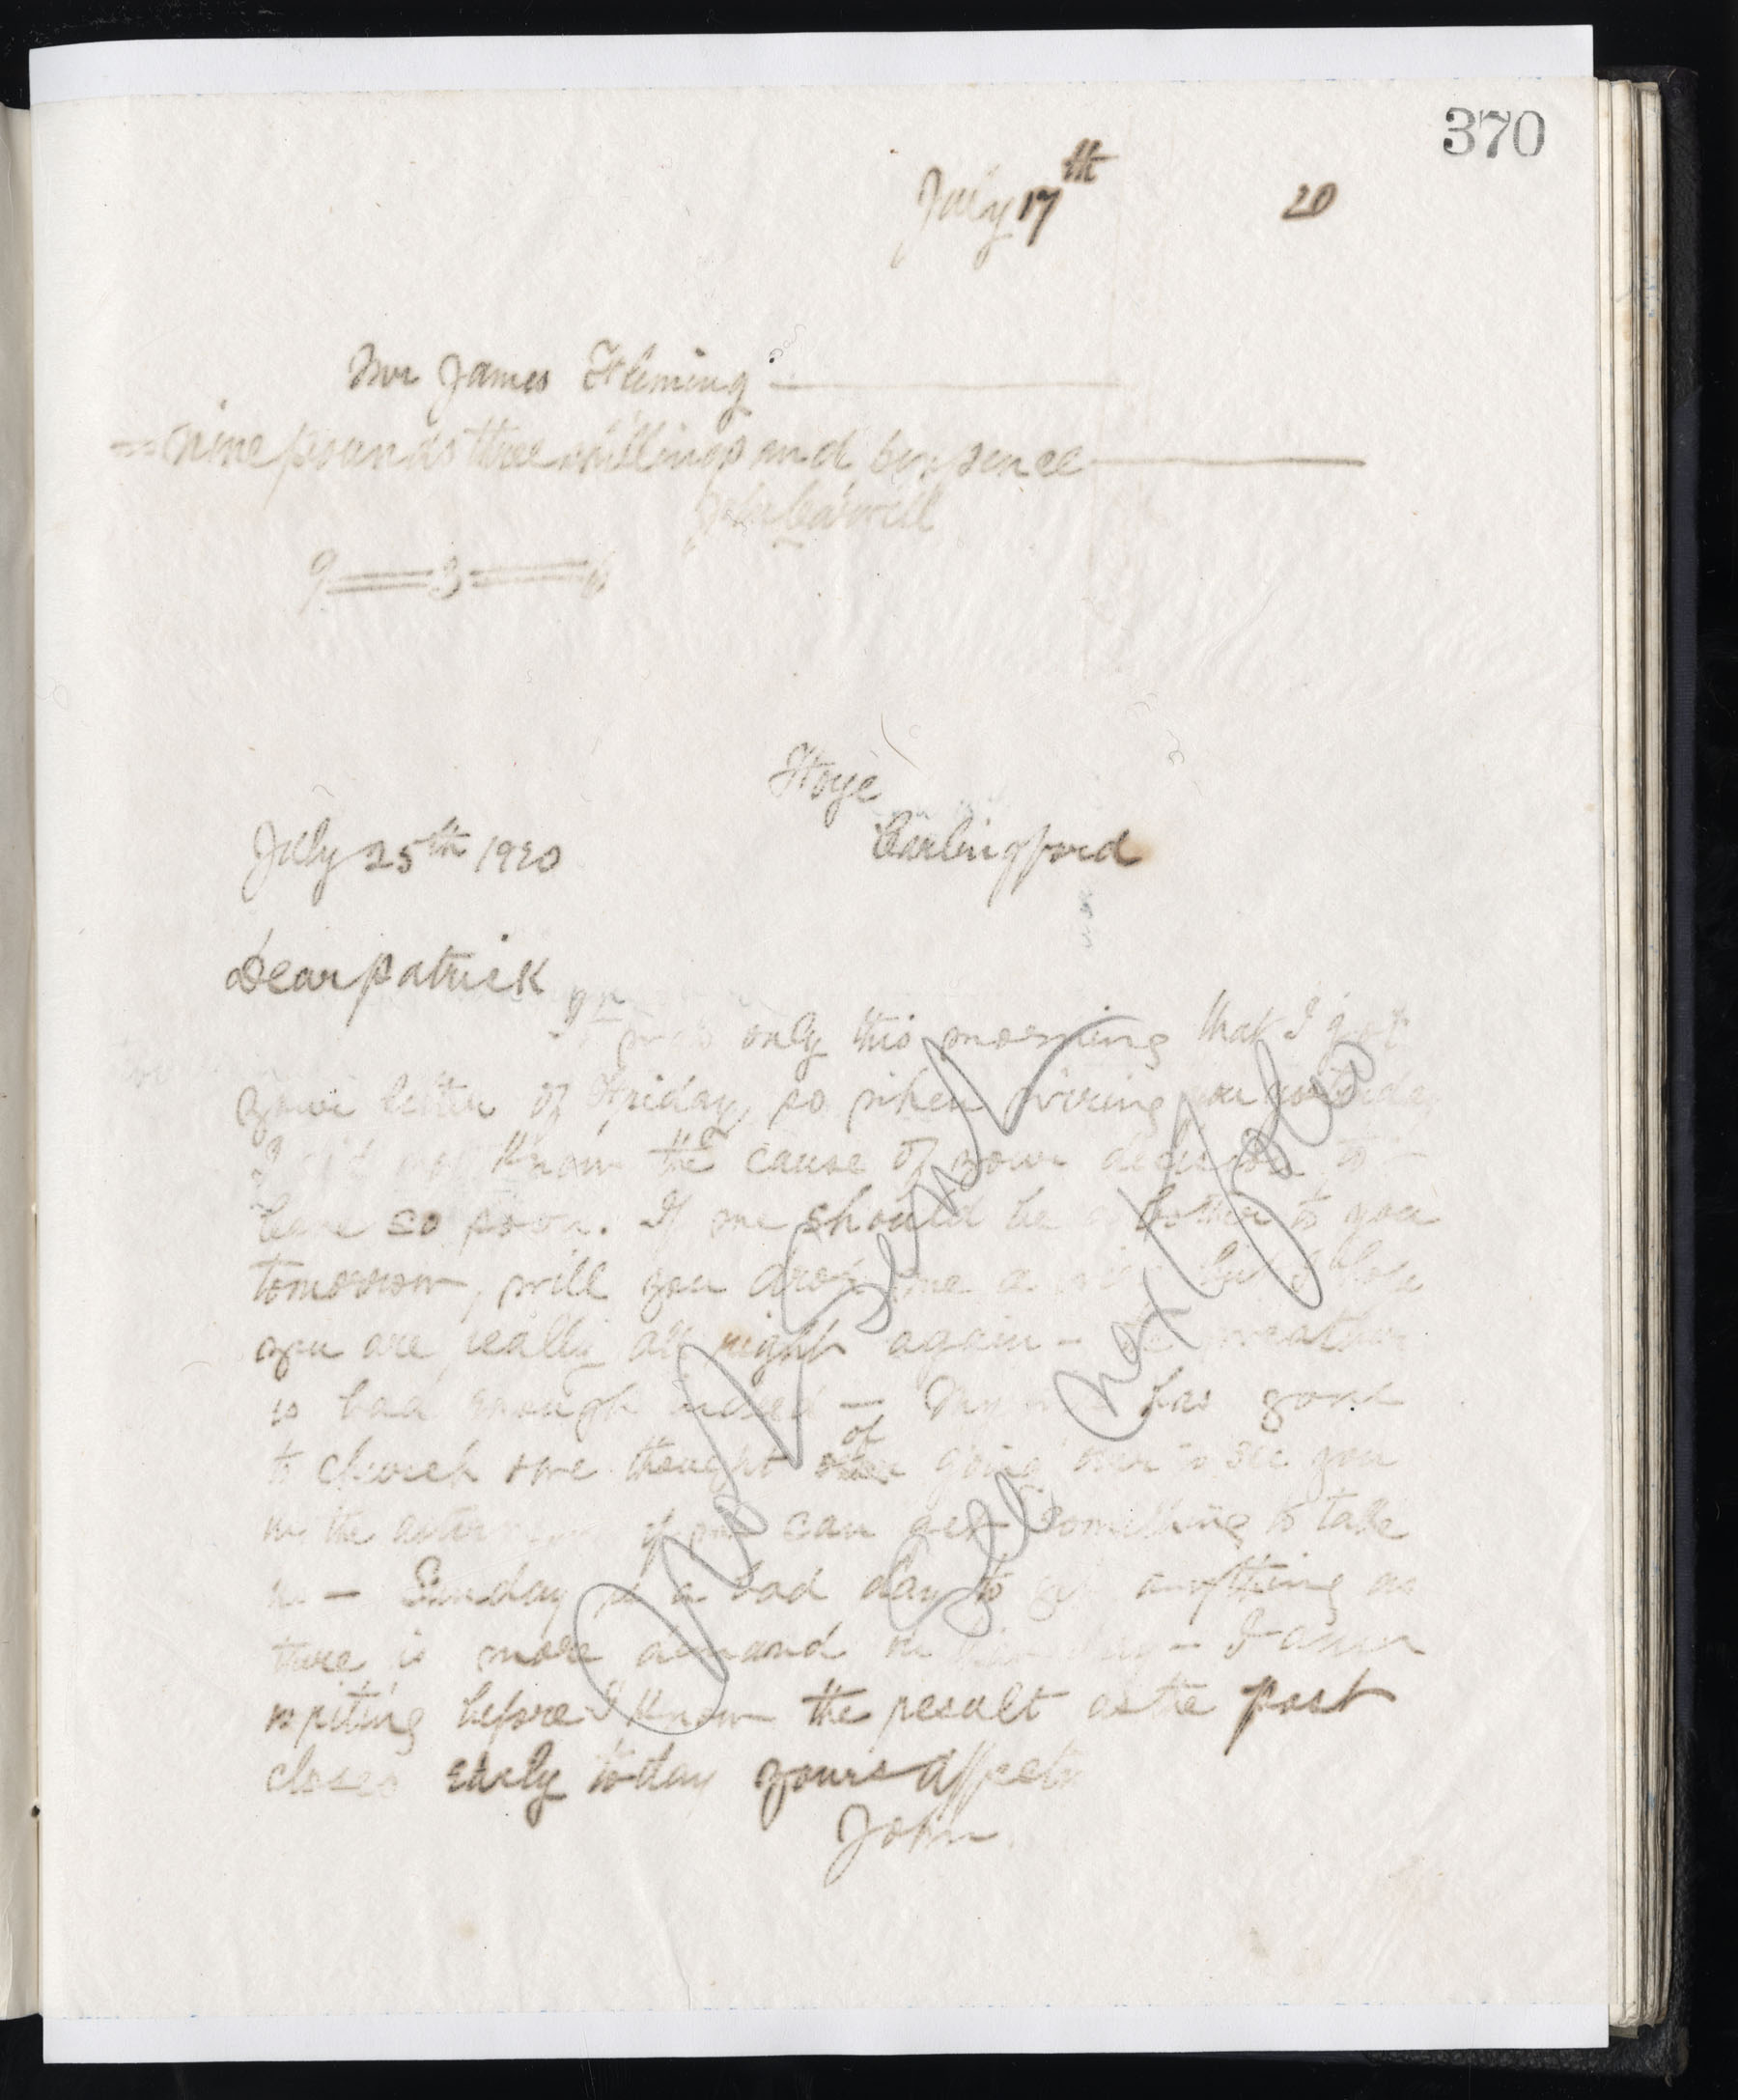 370
July 17th 20
Mr James Fleming
nine pounds three shillings and six pence
John
9 = 3 = 6
Carlingford
July 25th 1920
Dear Patrick
It was only this morning that I got
your letter of Friday, so when wiring you yesterday
I did not know the cause of your decision to
leave so soon. If we should be a bother to you
tomorrow, will you drop me a wire but I hope
you are really all right again - the weather
is bad enough indeed - has gone
to church & we thought of going over to see you
in the afternoon if we can get something to take
us - Sunday is a bad day to get anything as
there is more demand on - I am
writing before I know the result as the post
closes early to day yours affectn
John
Not Sent
See next folio